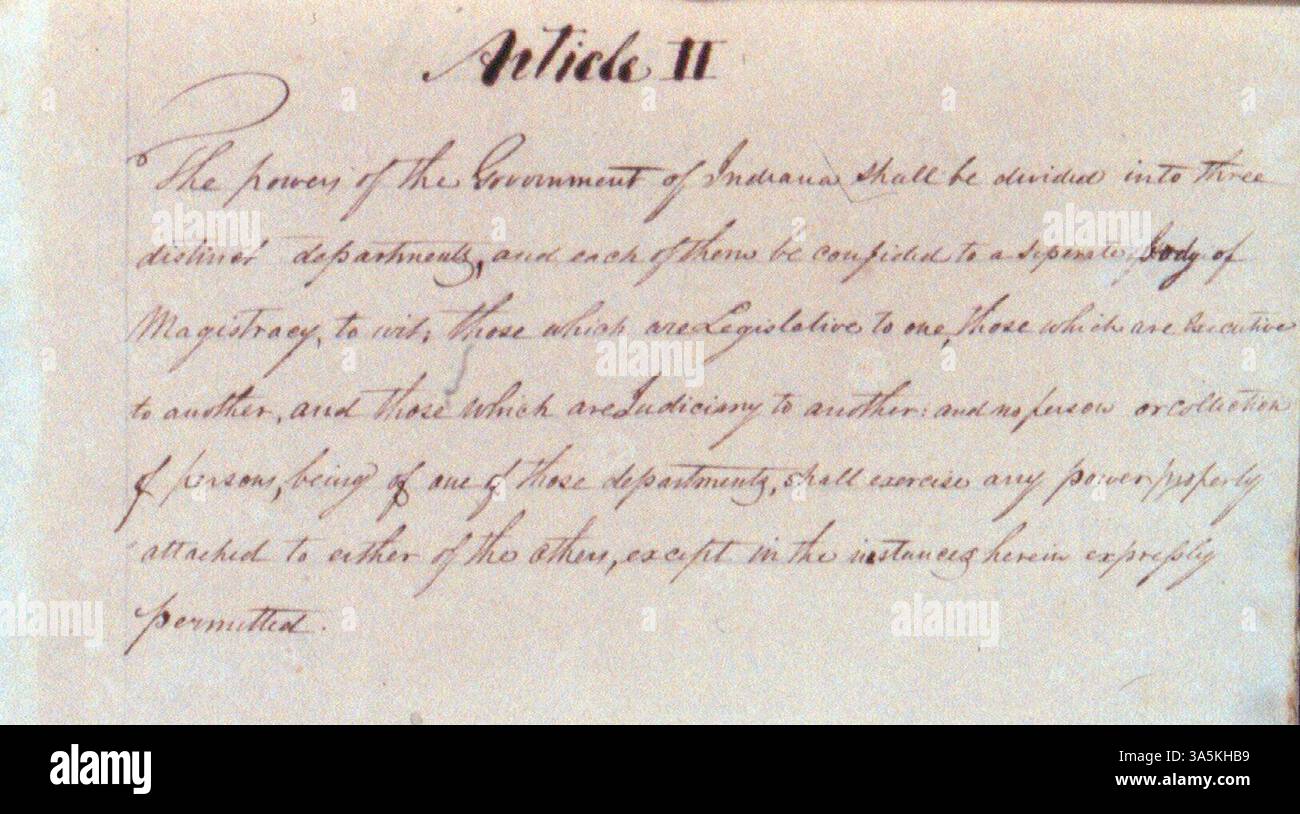 Article II
The powers of the Government of Indiana shall be divided into three
distinct departments, and each of them be confided to a seperate body of
Magistracy, to wit, those which are Legislative to one, those which are executive
to another, and those which are Judiciary to another: and no person or collection
of persons, being of one of those departments, shall exercise any power properly
attached to either of the others, except in the instances herein expressly
permitted.
alamy
Image ID: 3A5KHB9
www.alamy.com